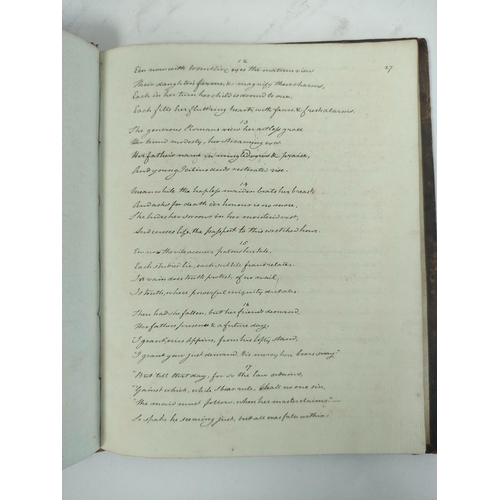 12
Een now with trembling eyes the matrons view
27
Their daughters forms, & magnify their charms,
Each in her turn her child is doomed to rue,
Each fills her fluttering heart, with fears & fresh alarms.
13
The generous Romans view her artless grace
Her timid modesty, her streaming eye
Her father's name in mingled cries & praise,
And young Icilius deeds reiterate rise.
14
Meanwhile the hapless maiden beats her breast
And asks for death ere honour is no more,
She hides her sorrows in her moistened vest,
And curses life, the passport to this wretched hour.
15
Ev'n now the vile accuser palms his tale,
Each studied lie, each subtile fraud relates
In vain does truth protest, of no avail,
Is truth, where powerful iniquity dictates.
16
Then had she fallen, but her friends demand
Her fathers presence & a future day,
"I grant, cries Appius, from his lofty stand,
"I grant your just demand
17
"But till that day, for so the law ordains,
"'Gainst which, while I bear rule, shall no one sin,
"The maid must follow, when her master claims"—
So spake he seeming just, but all was false within.